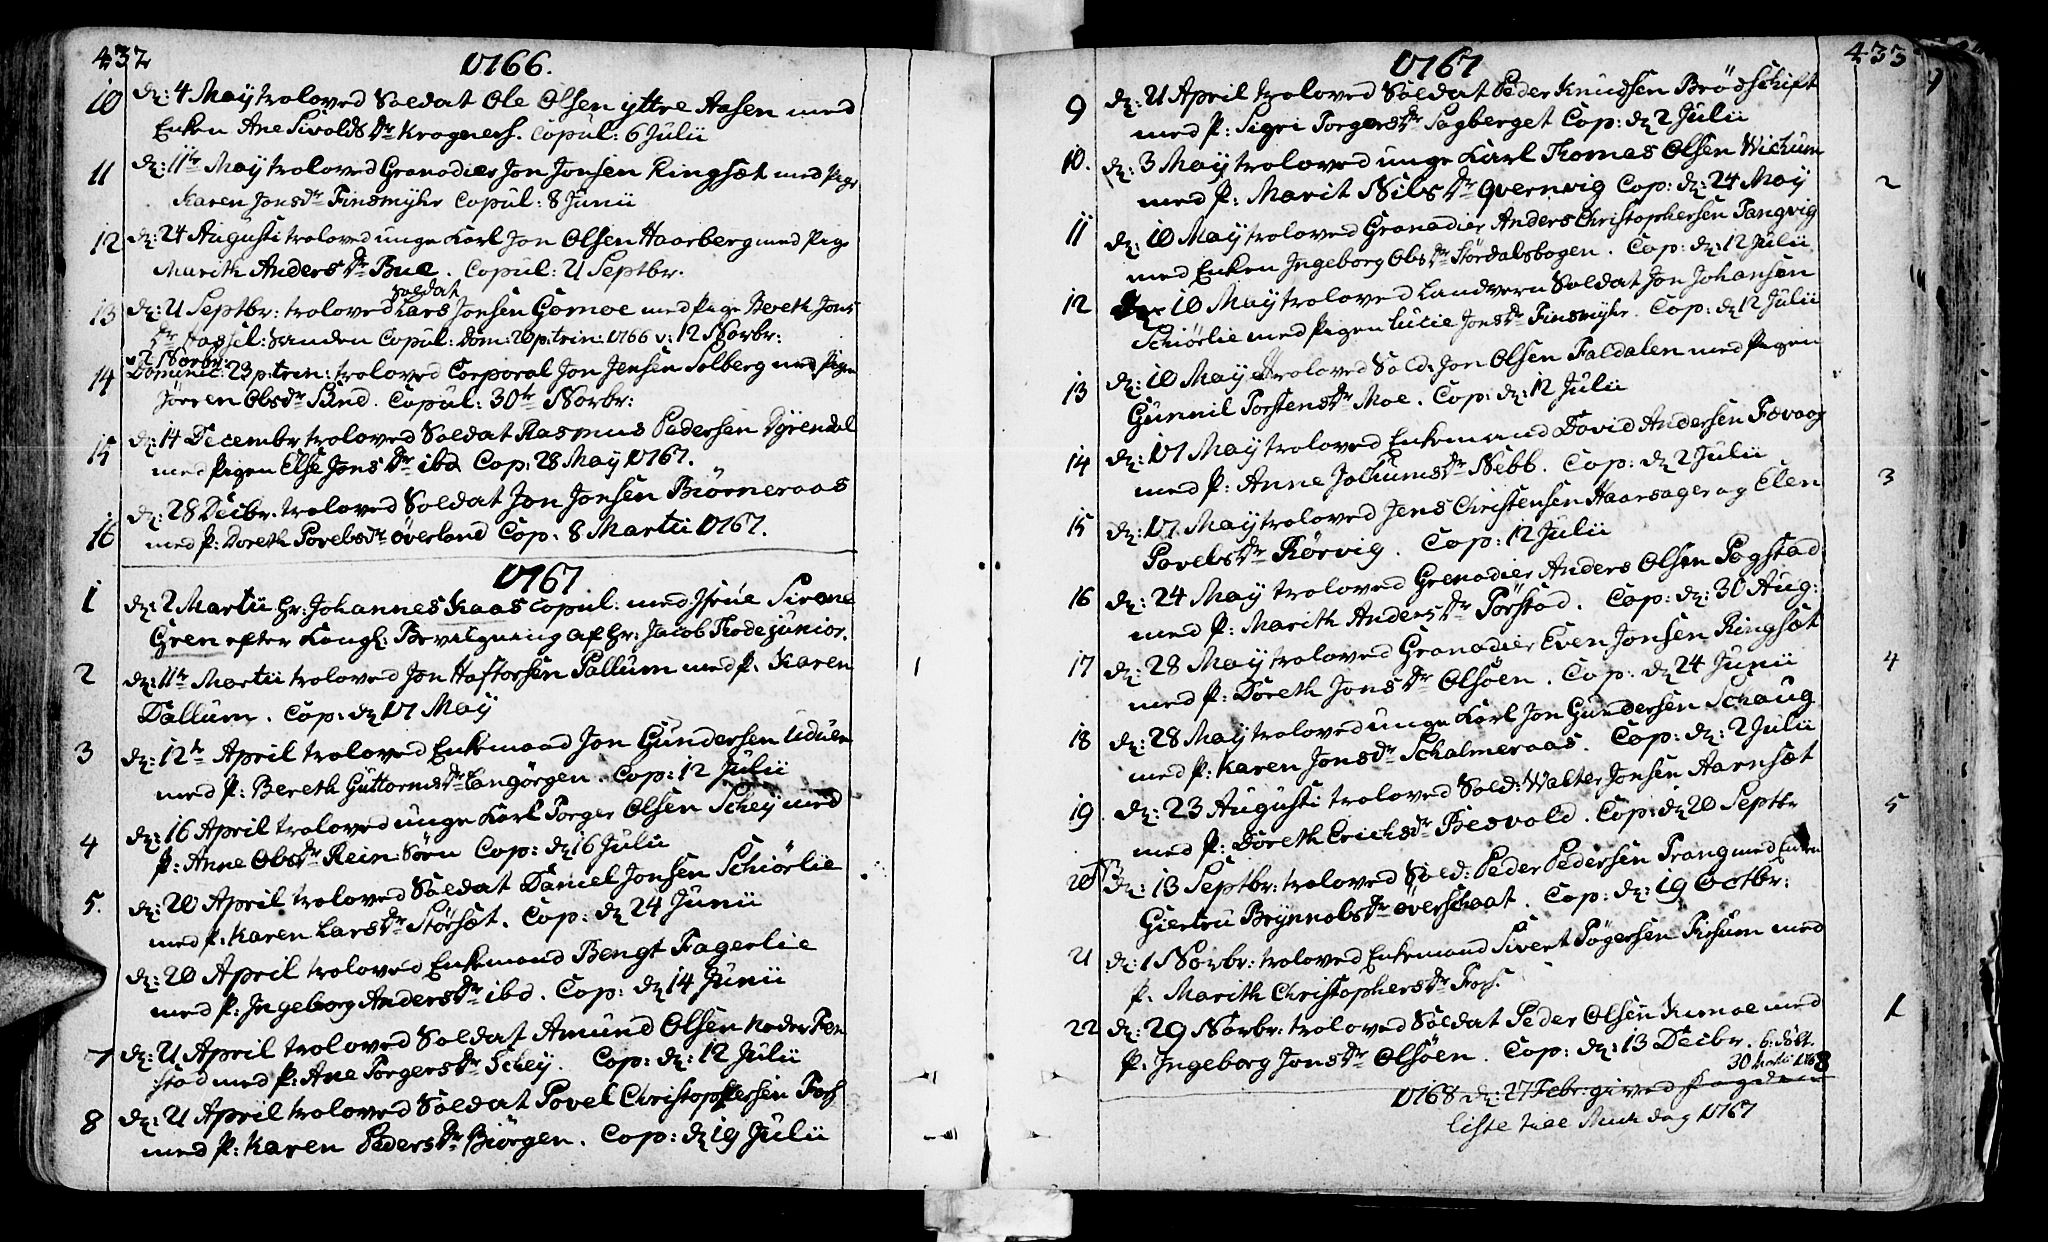 432
1766.
10 d: 4 May troloved Soldat Ole Olsen yttre Aasen med
Enken Ane Sivolds dr Krogners. Copul: 6 Julii
11 d: 11te May troloved Granadier Jon Jonsen Ringsæt med Pige
Karen Jonsdr Finsmyhr Copul: 8 Junii
12 d: 24 Augusti troloved unge Karl Jon Olsen Haarberg med Pige
Marith Anders dr Bue. Copul: 21 Septbr.
Soldat
13 d: 21 Septbr: troloved Lars Jonsen Gomoe med Pige Bereth Jons
dr Hassel: Sanden Copul: Dom: 20 p: trin: 1766 v: 12 Novbr:
2 Novbr:
14 Dominic: 23 p: trin: troloved Corporal Jon Jensen Solberg med Pigen
Jörren Olsdr Sund. Copul: 30te Novbr:
15 d: 14 Decembr troloved Soldat Rasmus Pedersen Dyrendal
med Pigen Else Jons dr ibd Cop: 28 May 1767.
16 d: 28 Decbr. troloved Soldat Jon Jonsen Biörneraas
med P: Doreth Povels dr överland Cop: 8 Martii 1767.
1767
1 d: 2 Martii Hr: Johannes Kaas Copul: med Jfrue Sirane
Gren efter Kongl: Bevilgning af Hr: Jacob Thode junior.
2 d: 11te Martii troloved Jon Haftorsen Pallum med P: Karen
Dallum. Cop: d 17 May
1
3 d: 12te April troloved Enkemand Jon Gundersen Uduen
med P: Bereth Guttormsdr Langörgen. Cop: 12 Julii
4 d: 16 April troloved unge Karl Torger Olsen Schey med
P: Anne Olsdr Rein Sörn Cop: d 16 Julii
5. d: 20 April troloved Soldat Daniel Jonsen Schiörlie
med P: Karen Lars dr Störsæt. Cop: d 24 Junii
d: 20 April troloved Enkemand Bengt Fagerlie
med P: Ingeborg Anders dr ibd. Cop: d 14 Junii
7 d: 21 April troloved Soldat Amund Olsen Neder Fen
stad med P: Ane Torgers dr Schey. Cop: d: 12 Julii
8 d: 21 April troloved Soldat Povel Christophersen Fors
med P: Karen Peders dr Biörgen. Cop: d 19 Julii
433
1767
9 d: 21 April troloved Soldat Peder Knudsen Brödschift
med P: Sigri Torgersdr Sagberget Cop: d 2 Julii
10. d: 3 May troloved unge Karl Thomas Olsen Wichum
med P: Marit Nils dr Qvernvig Cop: d: 24 May
2
11 d: 10 May troloved Granadier Anders Christophersen Tangvig
med Enken Ingeborg Olsdr Stördalsbogen. Cop: d: 12 Julii
12 d: 10 May troloved Landvern Soldat Jon Johansen
Schiörlie med Pigen Lucie Jonsdr Finsmyhr. Cop: d 12 Julii
13 d: 10 May troloved Sold: Jon Olsen Faldalen med Pigen
Gunnil Torstens dr Moe. Cop: d: 12 Julii
14 d: 17 May troloved Enkemand David Andersen
med P: Anne Jochumsdr Nebb. Cop: d 2 Julii
3
15 d: 17 May troloved Jens Christensen Haarsager og Elen
Povelsdr Rörvig. Cop: 12 Julii
16 d: 24 May troloved Grenadier Anders Olsen Pogstad
med P: Marith Anders dr Pörstad. Cop: d: 30 Aug:
17 d: 28 May troloved Granadier Even Jonsen Ringsæt
med P: Doreth Jons dr Olsöen. Cop: d 24 Junii
4
18 d: 28 May troloved unge Karl Jon Gundersen Schaug
med P: Karen Jonsdr Schalmeraas. Cop: d: 2 Julii
19 d: 23 Augusti troloved Sold: Walter Jonsen Aarnsæt
med P: Doreth Erichsdr Besvold. Cop: d 20 Septbr
5
20 d: 13 Septbr: troloved Sold: Peder Pedersen Trang med Enken
Giertru Brynnolsdr överschaat. Cop: d: 19 Octbr:
21 d: 1 Novbr: troloved Enkemand Sivert Pögersen Fissum med
P. Marith Christophers dr Fors.
22 d: 29 Novbr: troloved Soldat Peder Olsen Kumoe med
P: Ingeborg Jons dr Olsöen. Cop: d: 13 Decbr.
1
1768 d: 27 Febr: gived Fogden
liste til 1767